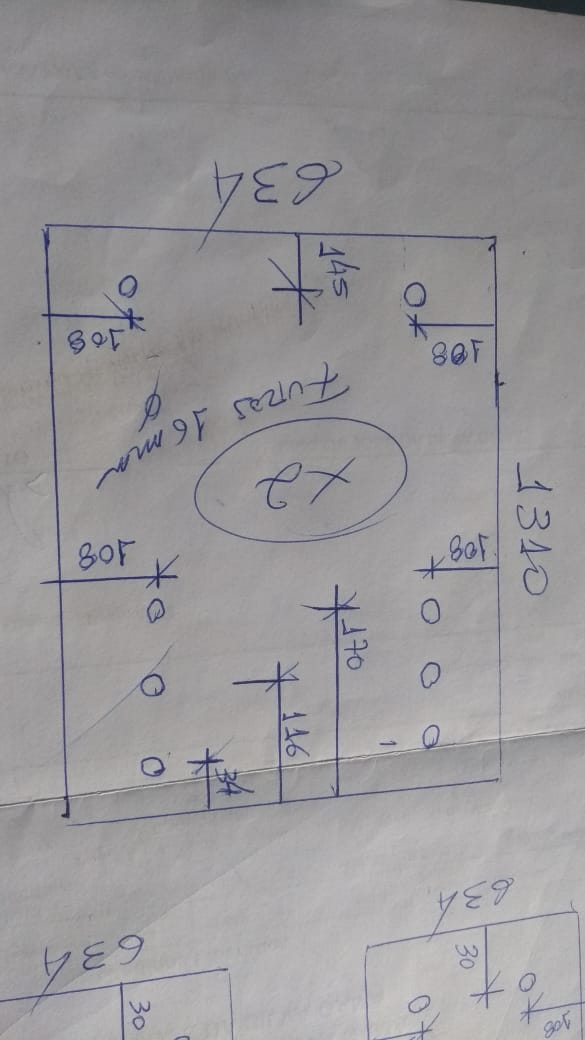 634
145
108
108
Furos 16 mm
Ø
x2
1310
108
108
170
116
34
634
30
108
634
30